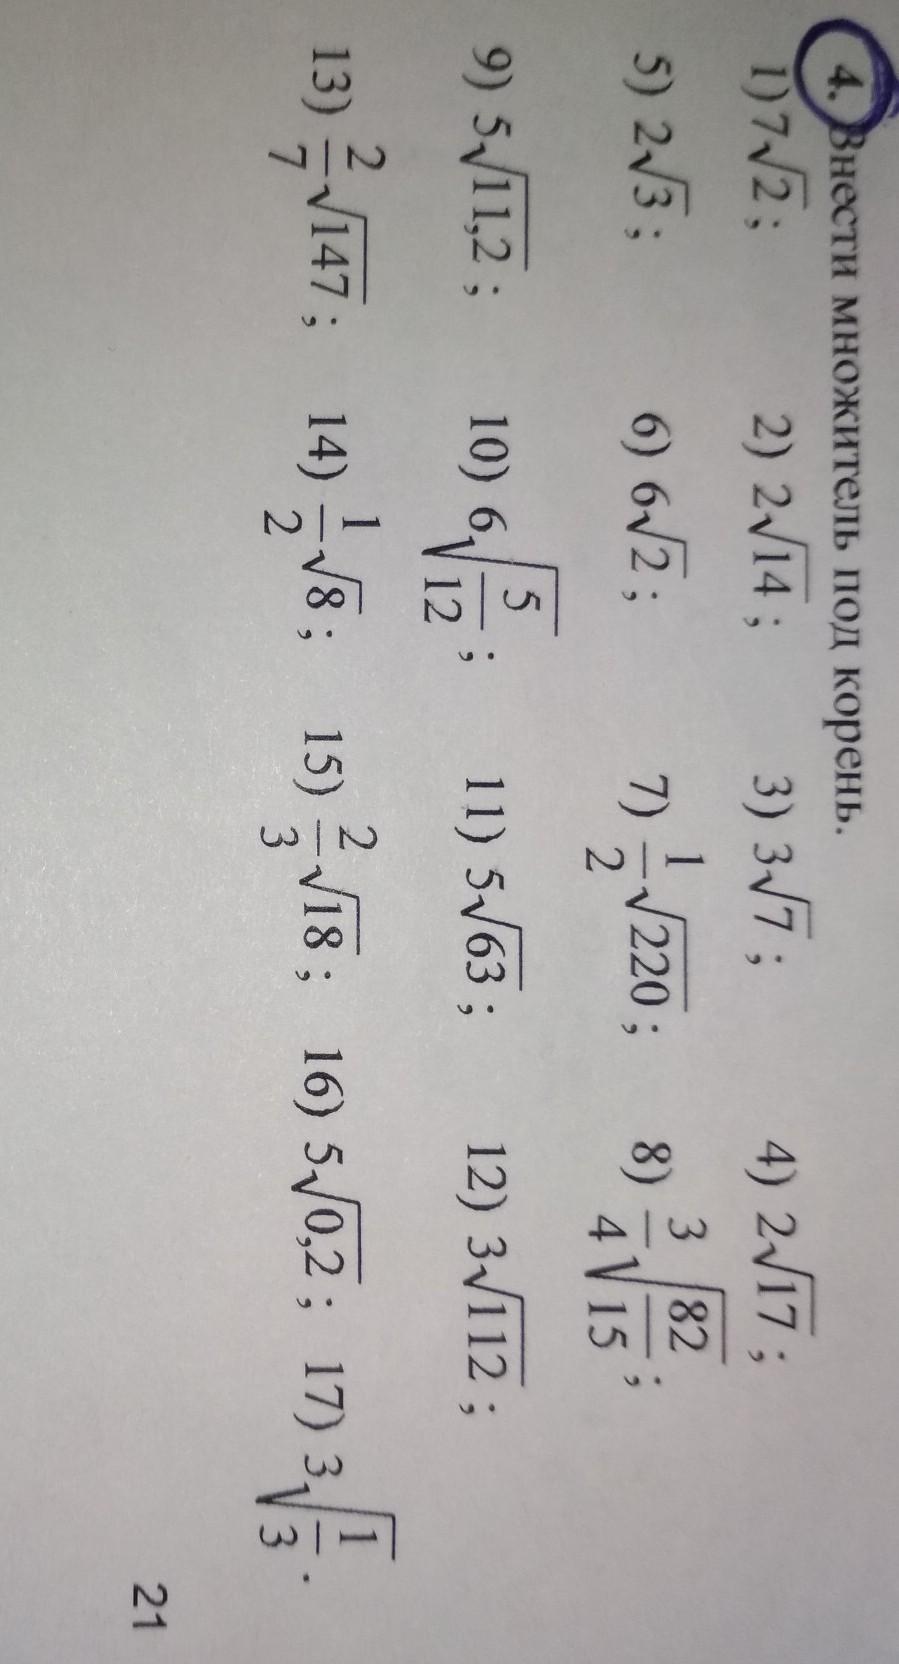 4. Внести множитель под корень.
1) 7√2; 2) 2√14; 3) 3√7; 4) 2√17;
5) 2√3; 6) 6√2; 7) 1/2√220; 8) 3/4√(82/15);
9) 5√11,2; 10) 6√(5/12); 11) 5√63; 12) 3√112;
13) 2/7√147; 14) 1/2√8; 15) 2/3√18; 16) 5√0,2; 17) 3√(1/3).
21